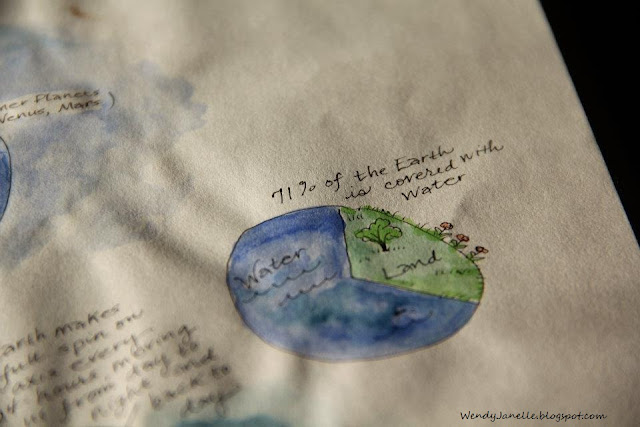 ner Planets
Venus, Mars)
71% of the Earth
is covered with
Water
Water
Land
arth makes
full spin on
axis every
hours moving
from day to
night and
back to
day
WendyJanelle.blogspot.com